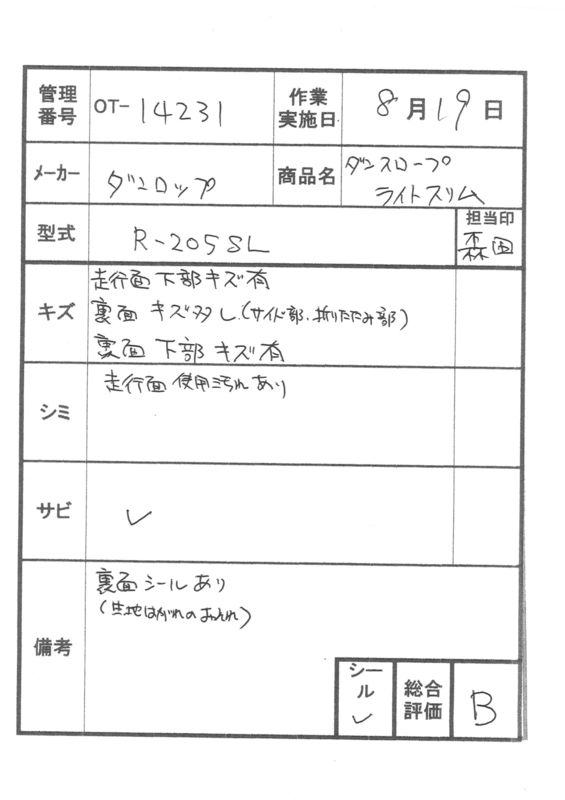 管理番号 OT-14231 作業実施日 8月19日
メーカー ダンロップ 商品名 ダンスロープ
ライトスリム
型式 R-205SL 担当印 森田
キズ 走行面 下部 キズ有
裏面 キズ多し.(サイド部.折りたたみ部)
裏面 下部 キズ有
シミ 走行面 使用汚れあり
サビ ✓
備考 裏面シールあり
(生地はがれの
シール ✓ 総合評価 B